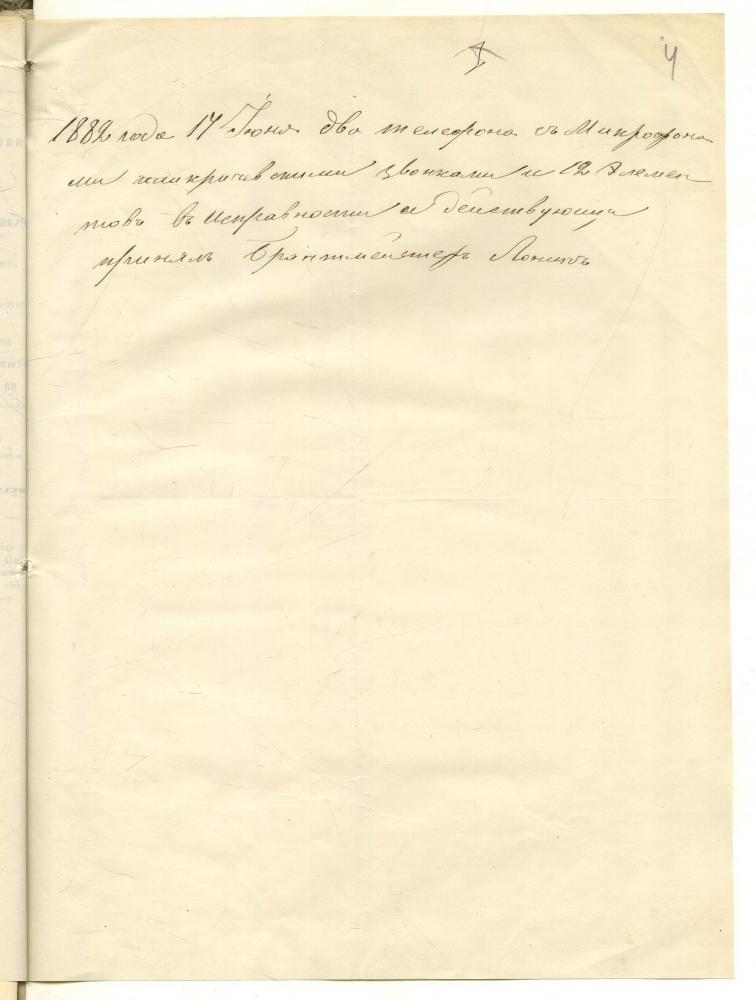 4
1882 года 17 Юня два телефона съ Микрофона
ми звонками и 12 Элемен
товъ въ Исправности и действующи
принялъ Брантмейстеръ